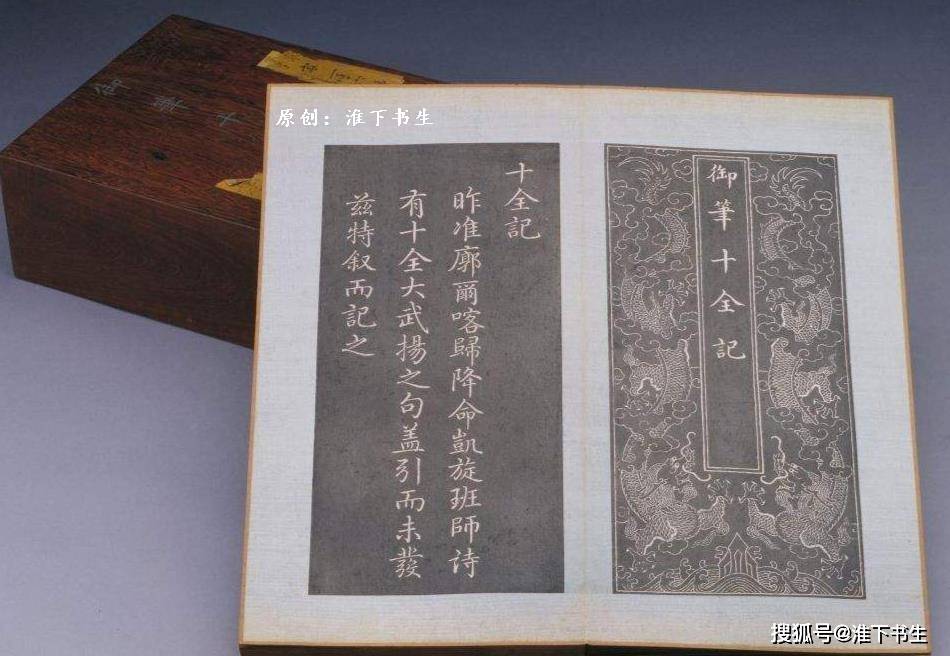 原创：淮下书生
御筆十全記
十全記
昨准廓爾喀歸降命凱旋班師詩
有十全大武揚之句盖引而未發
兹特叙而記之
搜狐号@淮下书生